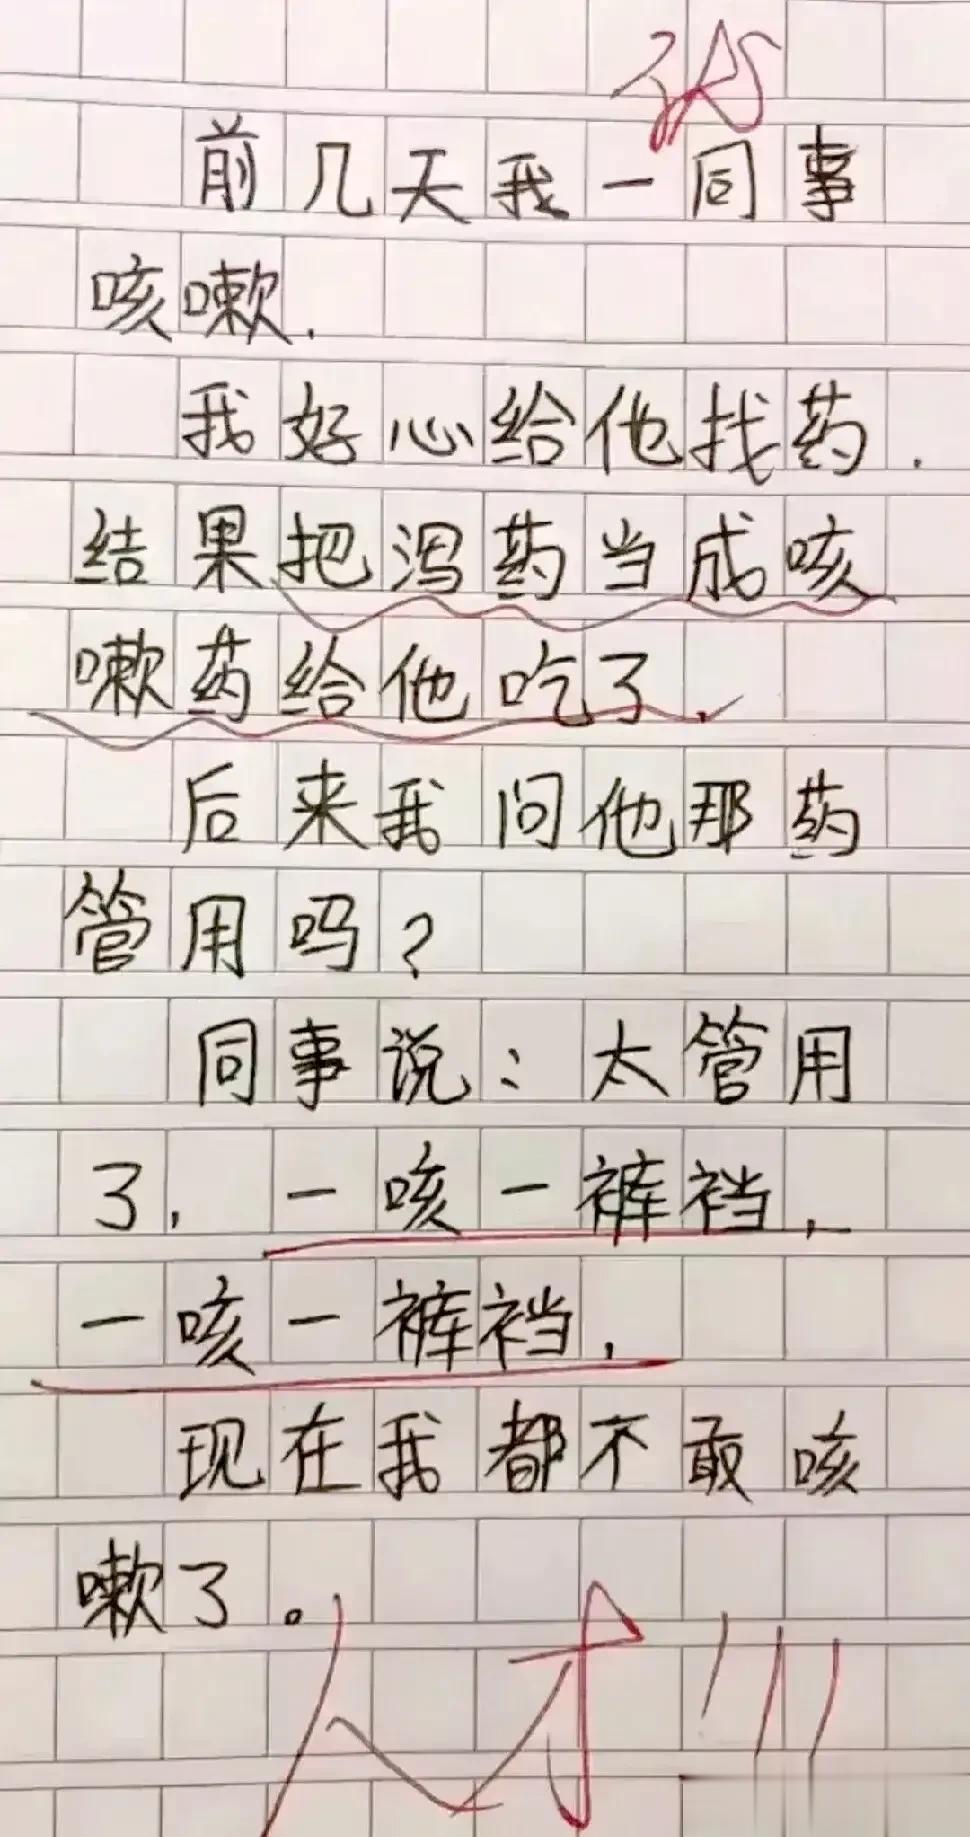 前几天我一同事
咳嗽.
我好心给他找药.
结果把泻药当成咳
嗽药给他吃了.
后来我问他那药
管用吗?
同事说:太管用
了,一咳一裤裆,
一咳一裤裆,
现在我都不敢咳
嗽了。
人才!!!